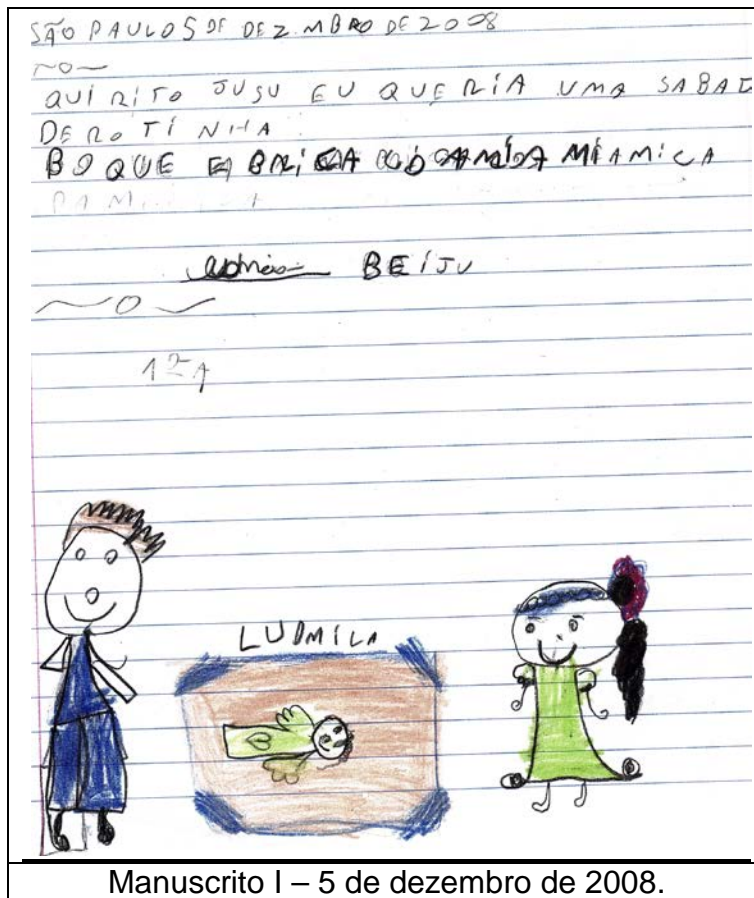 SÃO PAULO 5 DE DEZ.MBRO DE 2008
QUIRITO JUSU EU QUERIA UMA SABAD
DEROTINHA
BOQUE BRI MIAMICA
BEIJU
LUDMILA
Manuscrito I – 5 de dezembro de 2008.